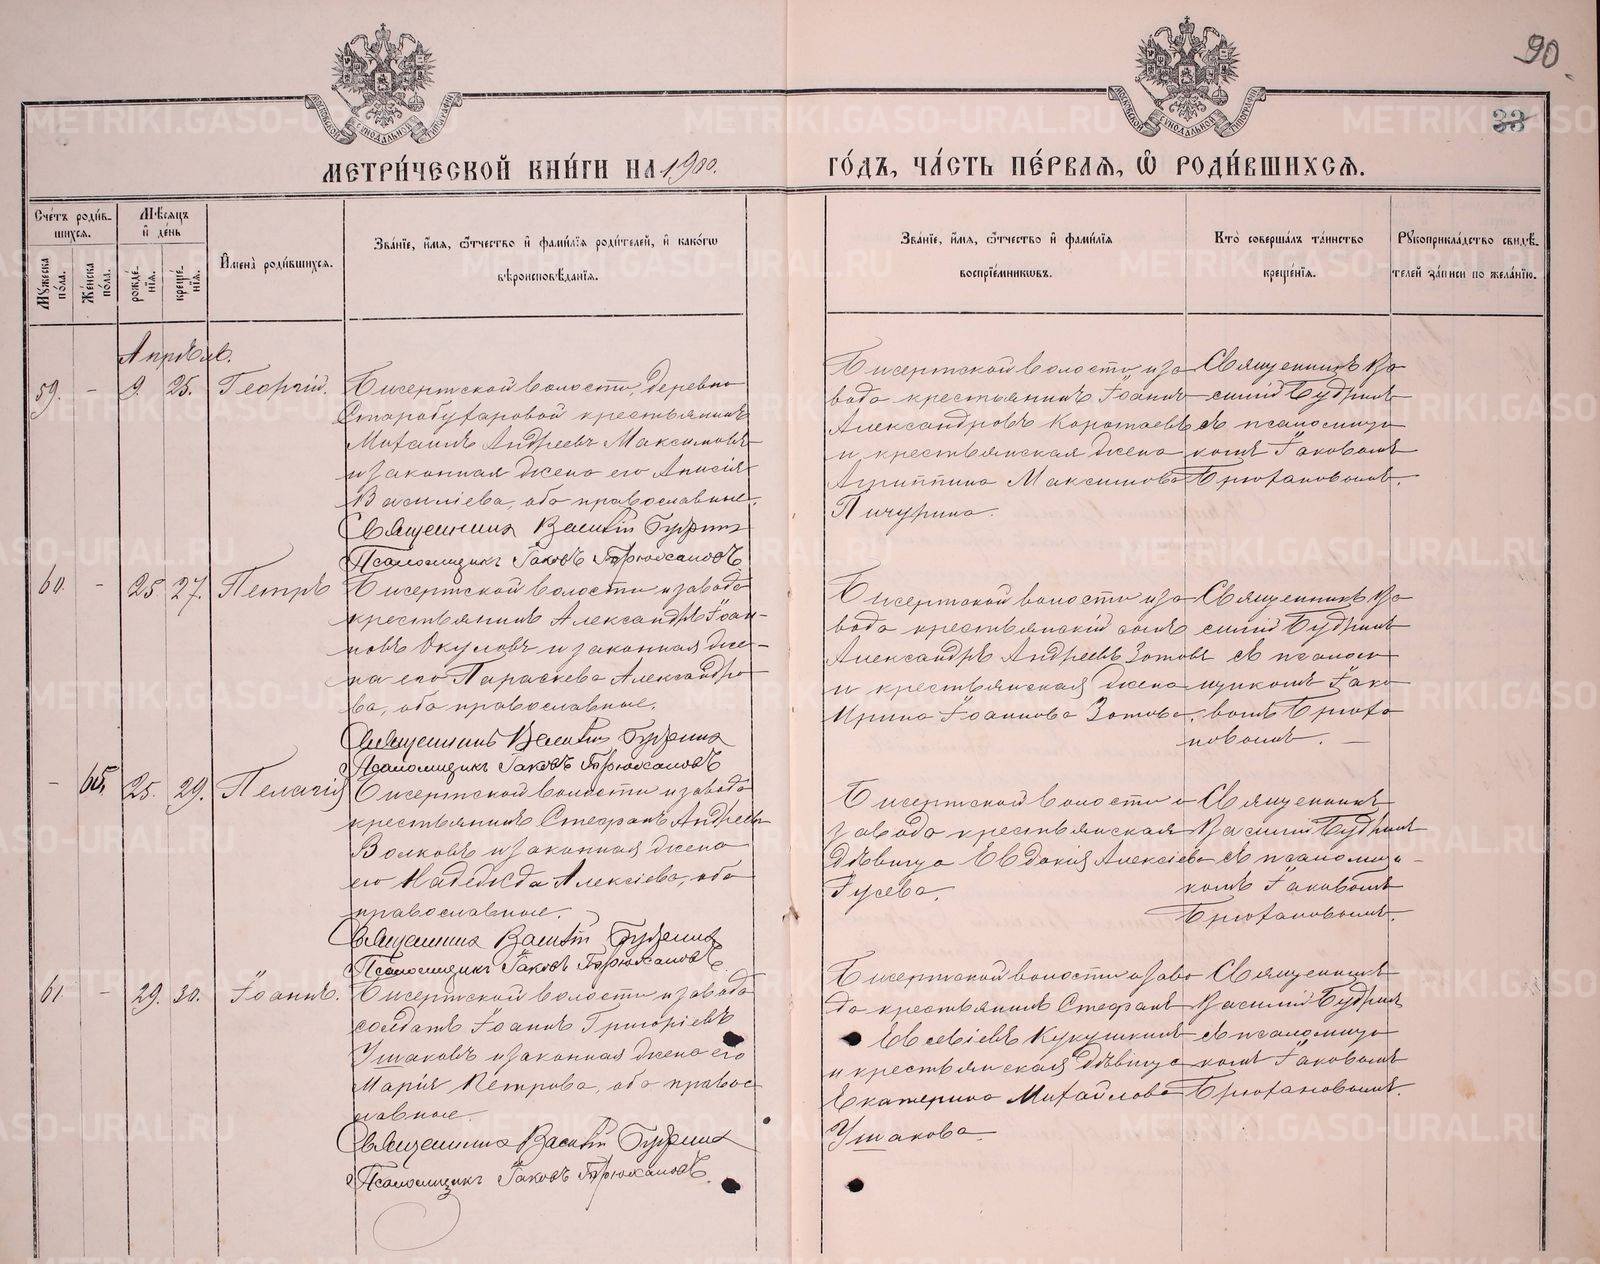 90
33
МЕТРИ́ЧЕСКОЙ КНИ́ГИ НА 1900. ГО́ДЪ, ЧА́СТЬ ПЕ́РВАѦ, Ѽ РОДИ́ВШИХСѦ.
Сче́тъ роди́в-
шихсѧ.
Мꙋ́жеска по́ла.
Же́нска по́ла.
Мѣ́сѧцъ
и҆ де́нь
рожде́-
нїѧ.
креще́-
нїѧ.
И҆мена̀ роди́вшихсѧ.
Зва́нїе, и҆́мѧ, ѻ҆́тчество и҆ фами́лїѧ роди́телей, и҆ како́гѡ
вѣроисповѣ́данїѧ.
Зва́нїе, и҆́мѧ, ѻ҆́тчество и҆ фами́лїѧ
воспрїе́мникѡвъ.
Кто̀ соверша́лъ та́инство
креще́нїѧ.
Рꙋкоприкла́дство свидѣ́-
телей за́писи по жела́нїю.
Апрѣль.
59. - 9. 25. Георгій.
Бисертской волости, деревни
Старобухаровой крестьянинъ
Михаилъ Андреевъ Максимовъ
и законная жена его Анисія
Василіева, оба православные.
Священникъ Василій Будринъ
Псаломщикъ Іаковъ Брюхановъ
Бисертской волости и за-
вода крестьянинъ Іоаннъ
Александровъ Коротаевъ
и крестьянская жена
Агриппина Максимова
Пичурина.
Священникъ Ва-
силій Будринъ
съ псаломщи-
комъ Іаковомъ
Брюхановымъ.
60. - 25 27. Петръ
Бисертской волости и завода
крестьянинъ Александръ Іоан-
новъ Окуловъ и законная же-
на его Параскева Александро-
ва, оба православные.
Священникъ Василій Будринъ
Псаломщикъ Іаковъ Брюхановъ
Бисертской волости и за-
вода крестьянскій сынъ
Александръ Андреевъ Зотовъ
и крестьянская жена
Ирина Іоаннова Зотова.
Священникъ Ва-
силій Будринъ
съ псалом-
щикомъ Іако-
вомъ Брюха-
новымъ. —
- 65. 25. 29. Пелагія
Бисертской волости и завода
крестьянинъ Стефанъ Андреевъ
Волковъ и законная жена
его Надежда Алексіева, оба
православные.
Священникъ Василій Будринъ
Псаломщикъ Іаковъ Брюхановъ.
Бисертской волости и
завода крестьянская
дѣвица Евдокія Алексіева
Гусева.
Священникъ
Василій Будринъ
съ псаломщи-
комъ Іаковомъ
Брюхановымъ.
61. - 29. 30. Іоаннъ.
Бисертской волости и завода
солдатъ Іоаннъ Григоріевъ
Ушаковъ и законная жена его
Марія Петрова, оба правос-
лавные.
Священникъ Василій Будринъ
Псаломщикъ Іаковъ Брюхановъ.
Бисертской волости и заво-
да крестьянинъ Стефанъ
Евсевіевъ Кукушкинъ
и крестьянская дѣвица
Екатерина Михайлова
Ушакова.
Священникъ
Василій Будринъ
съ псаломщи-
комъ Іаковомъ
Брюхановымъ.
METRIKI.GASO-URAL.RU